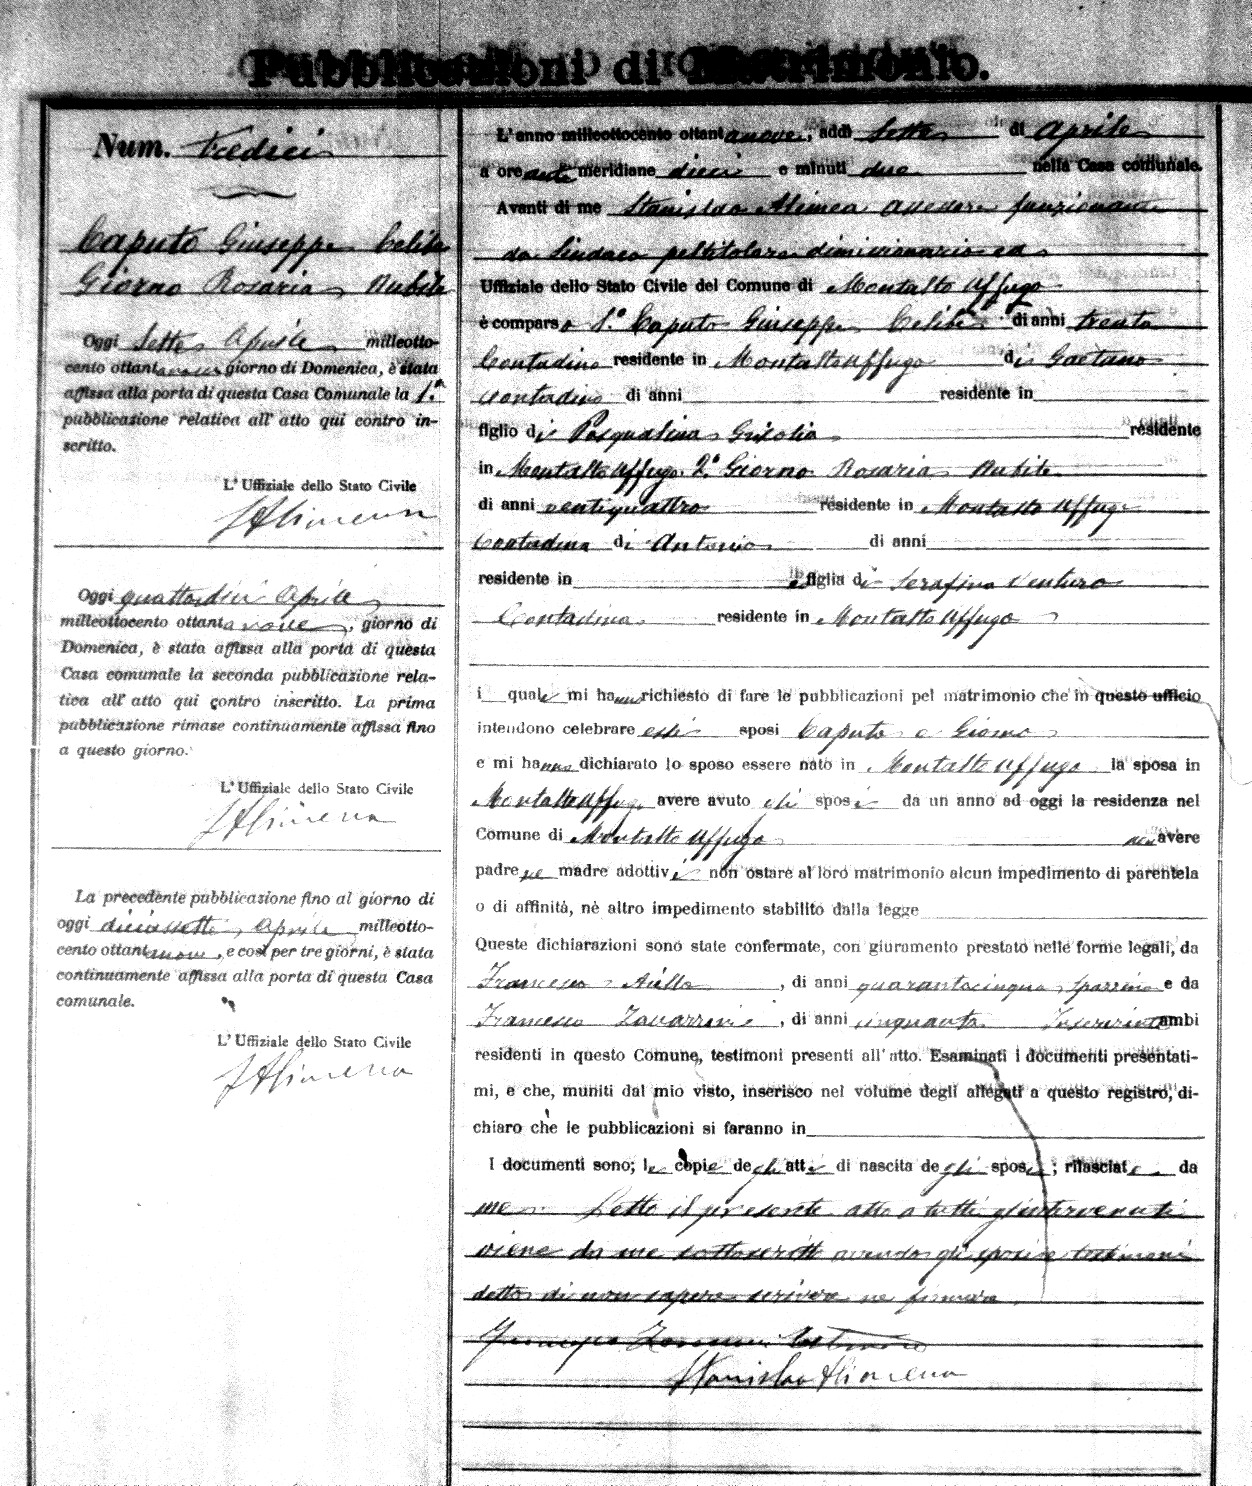 Pubblicazioni di Matrimonio.
Num. Tredici
Caputo Giuseppe Celibe
Giorno Rosaria Nubile
Oggi Sette Aprile milleotto-
cento ottantanove giorno di Domenica, è stata
affissa alla porta di questa Casa Comunale la 1.a
pubblicazione relativa all' atto qui contro in-
scritto.
L' Uffiziale dello Stato Civile
SAlimena
Oggi quattordici Aprile
milleottocento ottantanove, giorno di
Domenica, è stata affissa alla porta di questa
Casa comunale la seconda pubblicazione rela-
tiva all' atto qui contro inscritto. La prima
pubblicazione rimase continuamente affissa fino
a questo giorno.
L' Uffiziale dello Stato Civile
SAlimena
La precedente pubblicazione fino al giorno di
oggi diciassette Aprile milleotto-
cento ottantanove, e così per tre giorni, è stata
continuamente affissa alla porta di questa Casa
comunale.
L' Uffiziale dello Stato Civile
SAlimena
L' anno milleottocento ottantanove, addì Sette di Aprile
a ore ante meridiane dieci e minuti due nella Casa comunale.
Avanti di me Stanislao Alimena Assessore funzionante
da Sindaco pel titolare dimissionario ed
Uffiziale dello Stato Civile del Comune di Montalto Uffugo
è comparso 1.° Caputo Giuseppe Celibe di anni trenta
Contadino residente in Montalto Uffugo di Gaetano
contadino di anni residente in
figlio di Pasqualina Grisolia residente
in Montalto Uffugo. 2.° Giorno Rosaria Nubile
di anni ventiquattro residente in Montalto Uffugo
Contadina di Antonio di anni
residente in e figlia di Serafina Ventura
Contadina residente in Montalto Uffugo
i quali mi hanno richiesto di fare le pubblicazioni pel matrimonio che in questo ufficio
intendono celebrare essi sposi Caputo e Giorno
e mi hanno dichiarato lo sposo essere nato in Montalto Uffugo la sposa in
Montalto Uffugo avere avuto gli sposi da un anno ad oggi la residenza nel
Comune di Montalto Uffugo non avere
padre ne madre adottivi non ostare al loro matrimonio alcun impedimento di parentela
o di affinità, nè altro impedimento stabilito dalla legge
Queste dichiarazioni sono state confermate, con giuramento prestato nelle forme legali, da
Francesco Aiello, di anni quarantacinque, spazzino e da
Francesco Zavarrini, di anni cinquanta Inserviente ambi
residenti in questo Comune, testimoni presenti all' atto. Esaminati i documenti presentati-
mi, e che, muniti dal mio visto, inserisco nel volume degli allegati a questo registro, di-
chiaro chè le pubblicazioni si faranno in
I documenti sono; le copie degli atti di nascita degli sposi; rilasciate da
me. Letto il presente atto a tutti gl'intervenuti
viene da me sottoscritto avendo gli sposi e testimoni
detto di non sapere scrivere ne firmare
Stanislao Alimena